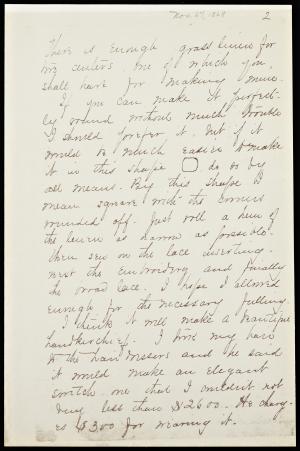 Nov. 27, 1868
2
There is enough grass linen for
two centers one of which you
shall have for making mine.
If you can make it perfect-
ly round without much trouble
I should prefer it. But if it
would be much easier to make
it in this shape do so by
all means. By this shape I
mean square with the corners
rounded off. Just roll a hem of
the linen as narrow as possible.
Then sew on the lace insertings.
next the embroidery and finally
the broad lace. I hope I allowed
enough for the necessary fulling.
I think it will make a beautiful
handkerchief. I took my hair
to the hair dressers and he said
it would make an elegant
switch one that I could not
buy less than $26.00. He charg-
es $3.00 for weaving it.